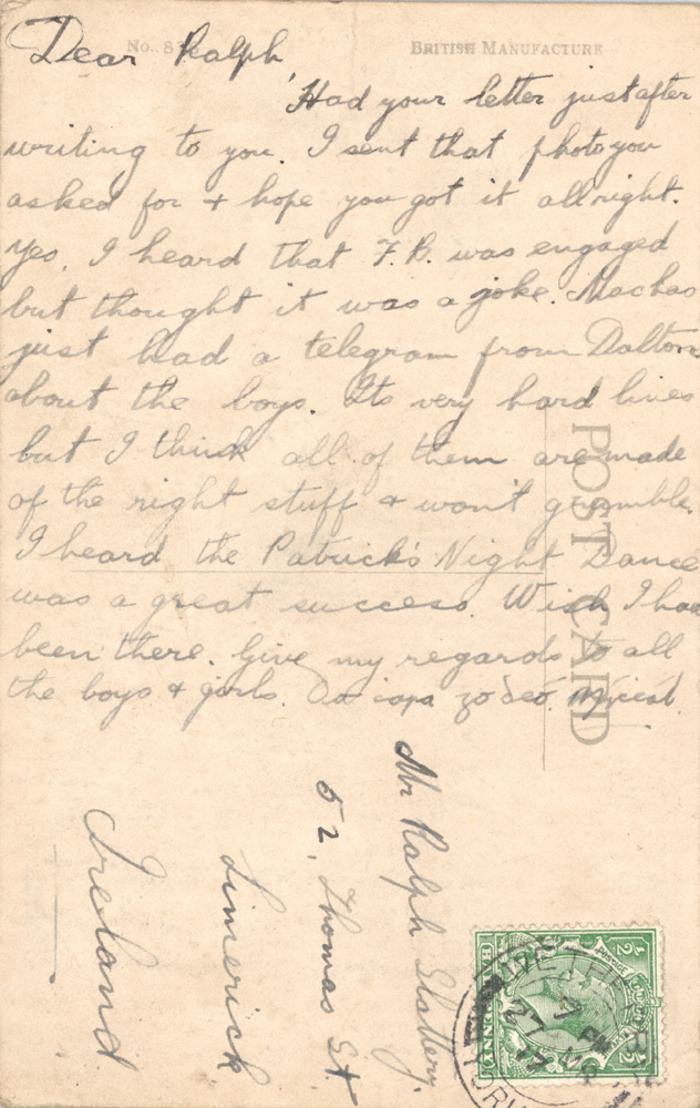 No. 8
BRITISH MANUFACTURE
Dear Ralph
Had your letter just after
writing to you. I sent that photo you
asked for + hope you got it allright.
Yes, I heard that F.B. was engaged
but thought it was a joke. Machas
just had a telegram from Dalton
about the boys. Its very hard lines
but I think all of them are made
of the right stuff + won't grumble.
I heard the Patrick's Night Dance
was a great success. Wish I had
been there. Give my regards to all
the boys + girls. Do
POST CARD
Mr Ralph Slattery.
52, Thomas St
Limerick
Ireland
WETHERBY
7 PM
27 MR
17